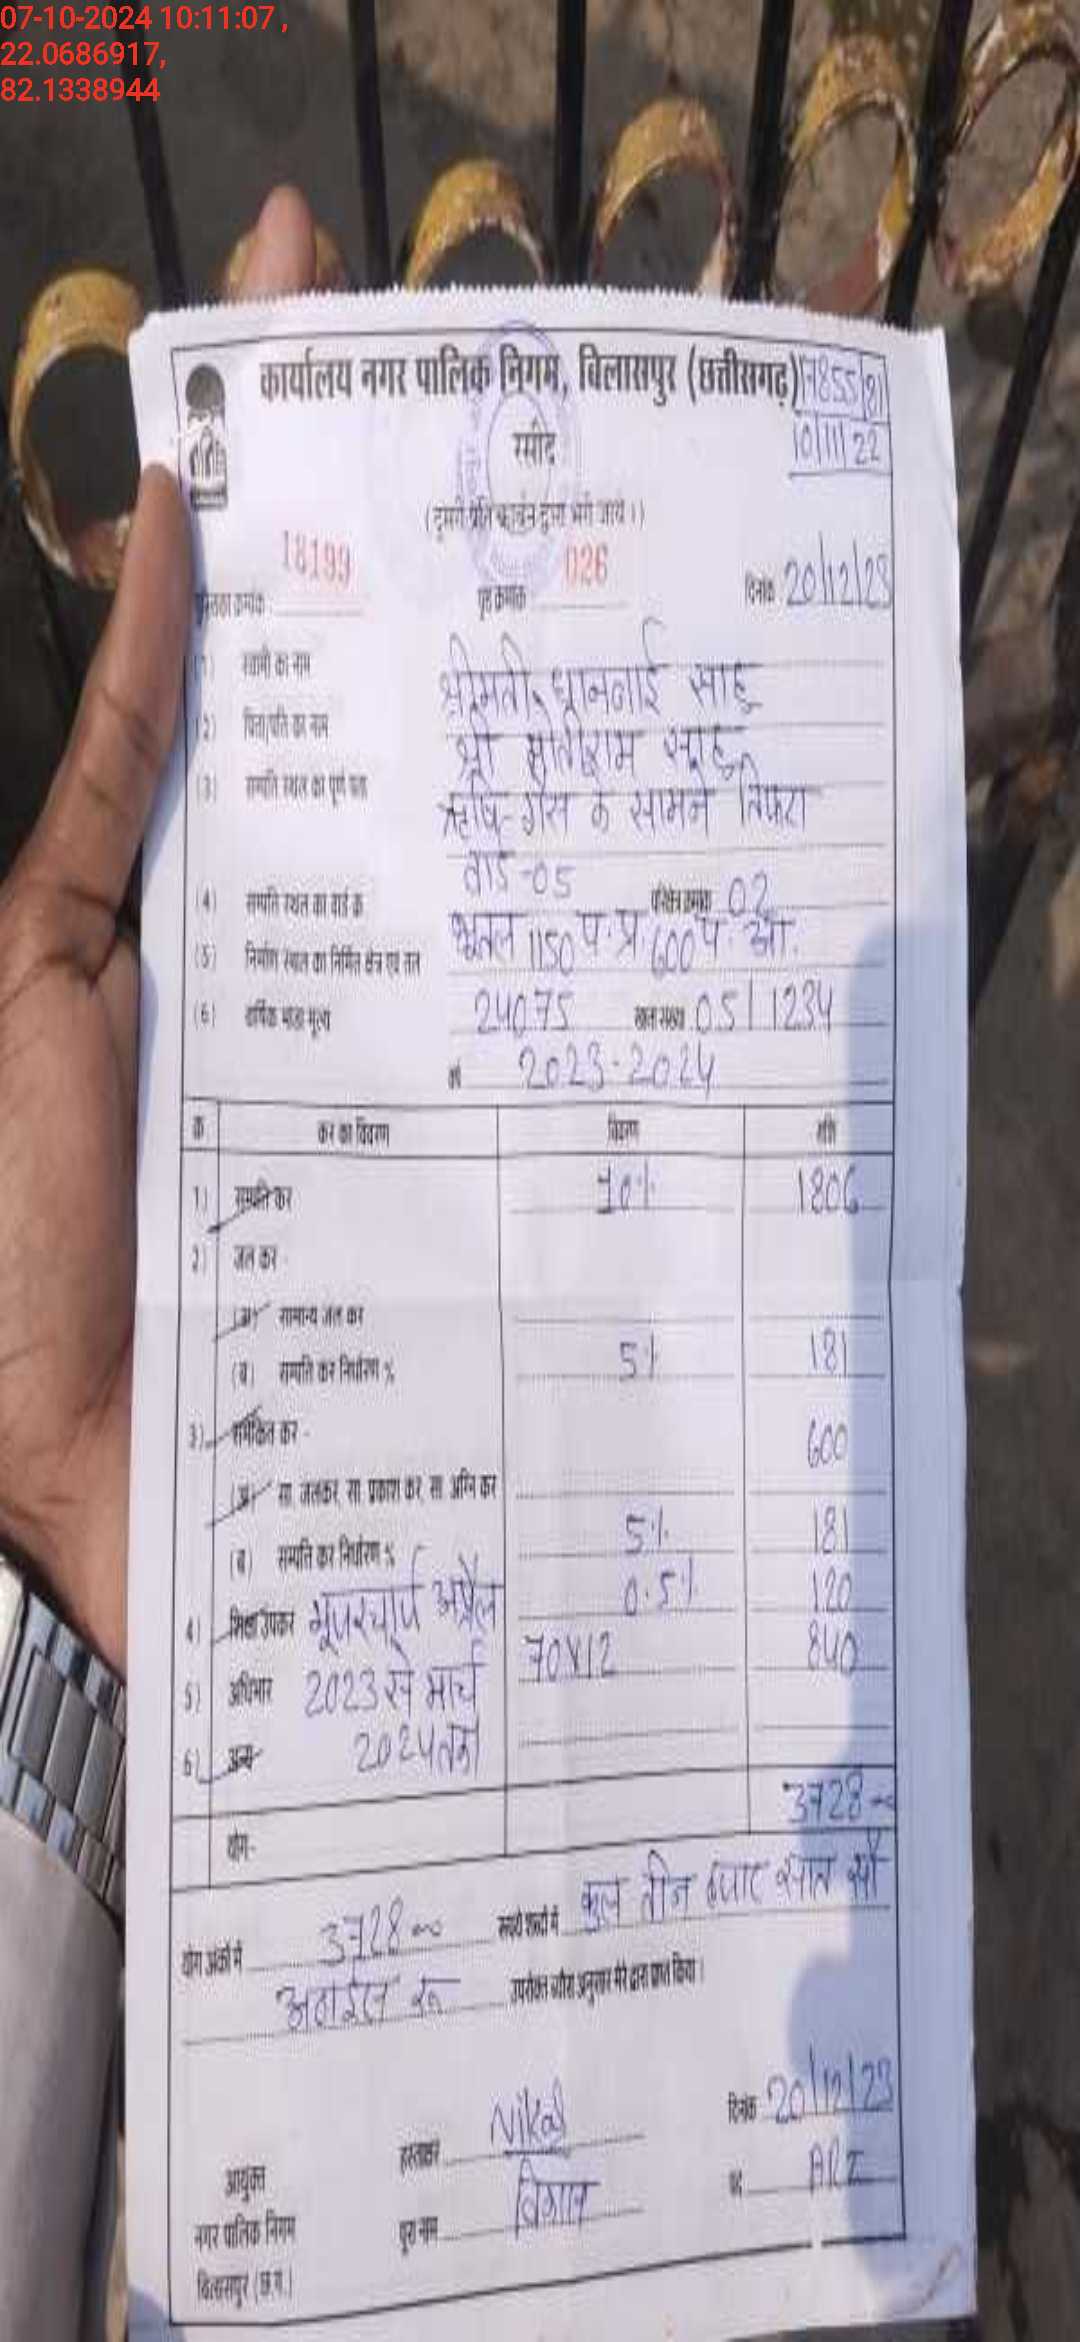 07-10-2024 10:11:07 ,
22.0686917,
82.1338944
कार्यालय नगर पालिक निगम, बिलासपुर (छत्तीसगढ़) 7855/21
10/11/22
रसीद
(दूसरी प्रति कार्बन द्वारा भरी जावे।)
पुस्तिका क्रमांक : 18199 पृष्ठ क्रमांक 026 दिनांक 20/12/23
(1) स्वामी का नाम श्रीमती धानबाई साहू
(2) पिता/पति का नाम श्री मोतीराम साहू
(3) सम्पत्ति स्थल का पूर्ण पता ऋषि गैस के सामने तिफरा
(4) सम्पत्ति स्थल का वार्ड क्र. वार्ड-05 परिक्षेत्र क्रमांक 02
(5) निर्माण स्थल का निर्मित क्षेत्र एवं तल भूतल 1150 प.प्र. 600 प. आ.
(6) वार्षिक भाड़ा मूल्य 24075 खाता संख्या 05/1234
वर्ष 2023-2024
क्र कर का विवरण विवरण राशि
1) सम्पत्ति कर 10% 1806
2) जल कर -
(अ) सामान्य जल कर
(ब) सम्पत्ति कर निर्धारण % 5% 181
3) समेकित कर - 600
(अ) सा. जलकर, सा. प्रकाश कर, सा. अग्नि कर
(ब) सम्पत्ति कर निर्धारण % 5% 181
4) शिक्षा उपकर यूजरचार्ज अप्रैल 0.5% 120
5) अधिभार 2023 से मार्च 70X12 840
6) अन्य 2024 तक
योग- 3728
योग अंकों में 3728 रूपये शब्दों में कुल तीन हजार सात सौ
अठाईस रू उपरोक्त ब्यौरा अनुसार मेरे द्वारा प्राप्त किया।
हस्ताक्षर दिनांक 20/12/23
आयुक्त पद ARI
नगर पालिक निगम पूरा नाम
बिलासपुर (छ.ग.)